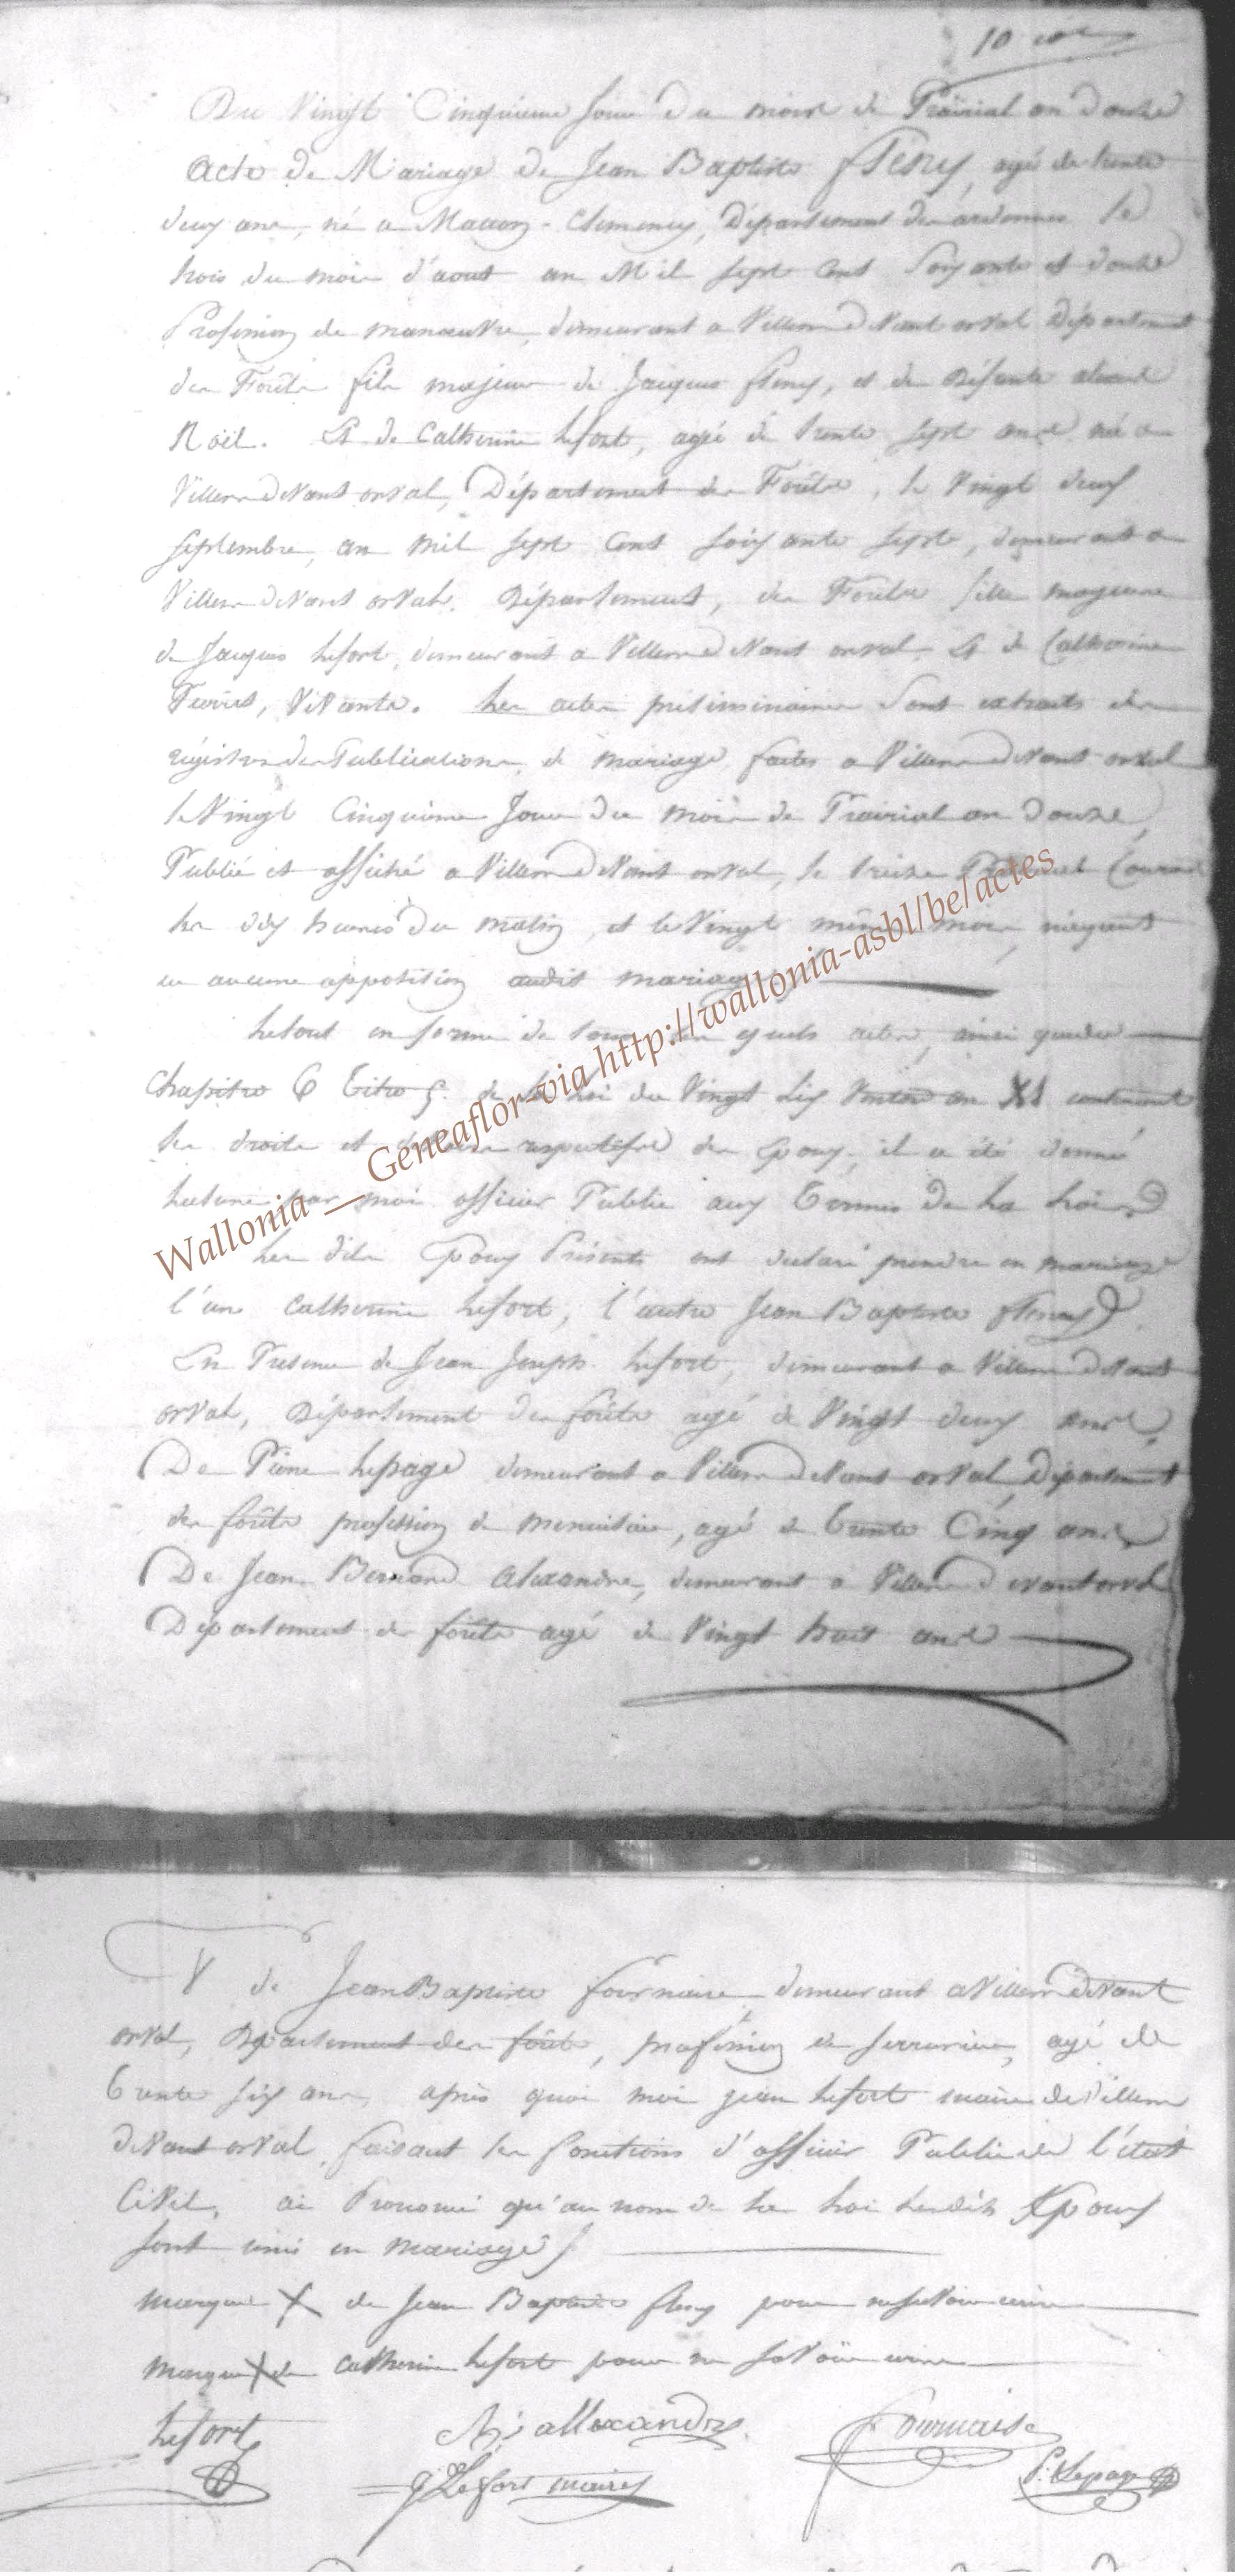 10
Du Vingt Cinquieme Jour du mois de Prairial an douze
Acte de Mariage de Jean Baptiste fleury, agé de trente
deux ans, né a Maucon-Clemency, Département des ardennes le
trois du mois d'aout an Mil sept Cent Soixante et douze
Profession de manoeuvre, demeurant a Villers devant orval Département
des Forêts fils majeur de Jacques fleury, et de Défunte
Noël. Et de Catherine Lefort, agée de trente sept ans né a
Villers devant orval, Département des Forêts, le Vingt deux
Septembre, an mil sept Cent soixante sept, demeurant a
Villers devant orval. Département, des Forêts fille majeure
de Jacques Lefort, demeurant a Villers devant orval. Et de Catherine
Vivante. Les actes préliminaires Sont extraits des
régistres des Publications de mariage faites a Villers devant orval
le Vingt Cinquieme Jour du mois de Prairial an douze,
Publié et affiché a Villers devant orval, le treize Prairial Courant
les dix heures du matin, et le Vingt même mois, n'ayant
eu aucune opposition audit mariage
Le tout en forme de tous les quels actes, ainsi que du
Chapitre 6 Titre 5. de la Loi du Vingt Six Ventose an XI contenant
les droits et devoirs respectifs des Epoux, il a été donné
Lecture par moi officier Public aux termes de La Loi
Les dits Epoux Présents ont declaré prendre en mariage
l'une Catherine Lefort, l'autre Jean Baptiste fleury
En Presence de Jean Joseph Lefort, demeurant a Villers devant
orval, Département des forêts agé de Vingt deux ans
De Pierre Lepage demeurant a Villers devant orval Département
des forêts profession de menuisier, agé de trente Cinq ans
De Jean Bernard Alexandre, demeurant a Villers devant orval
Département des forêts agé de Vingt huit ans
V de Jean Baptiste fournaise demeurant a Villers devant
orval, Département des forêts, profession de serrurier, agé de
trente six ans, après quoi moi jean Lefort maire de Villers
devant orval, faisant les fonctions d'officier Public de l'état
Civil, ai Prononcé qu'au nom de La Loi Lesdits Epoux
sont unis en Mariage
marque X de Jean Baptiste fleury pour ne savoir ecrire
marque X de Catherine Lefort pour ne savoir ecrire
Lefort
allexandre
fournaise
J Lefort maire
P: Lepage
Wallonia _ Geneaflor-via http://wallonia-asbl/be/actes